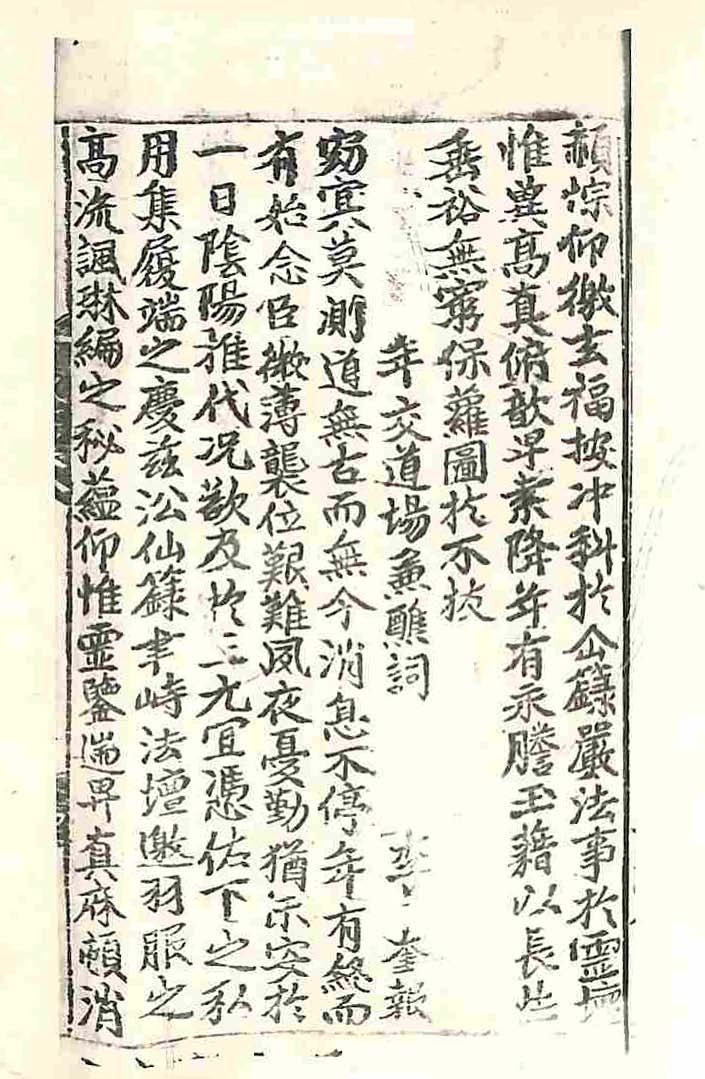 悰仰徼玄福披冲科於仙籙嚴法事於靈壇
惟兾高真俯歆卑素降年有永騰玉藉以長生
垂裕無窮保蘿圖於不拔
年交道場兼醮詞 李奎報
窈冥莫測道無古而無今消息不停年有終而
有始念臣微薄襲位艱難夙夜憂勤猶安於
一日陰陽推代况欲及於三元冝憑佑下之私
用集履端之慶兹㳂仙籙聿峙法壇邀羽服之
高流諷琳編之秘蘊仰惟靈鑒遄畀真庥頓消